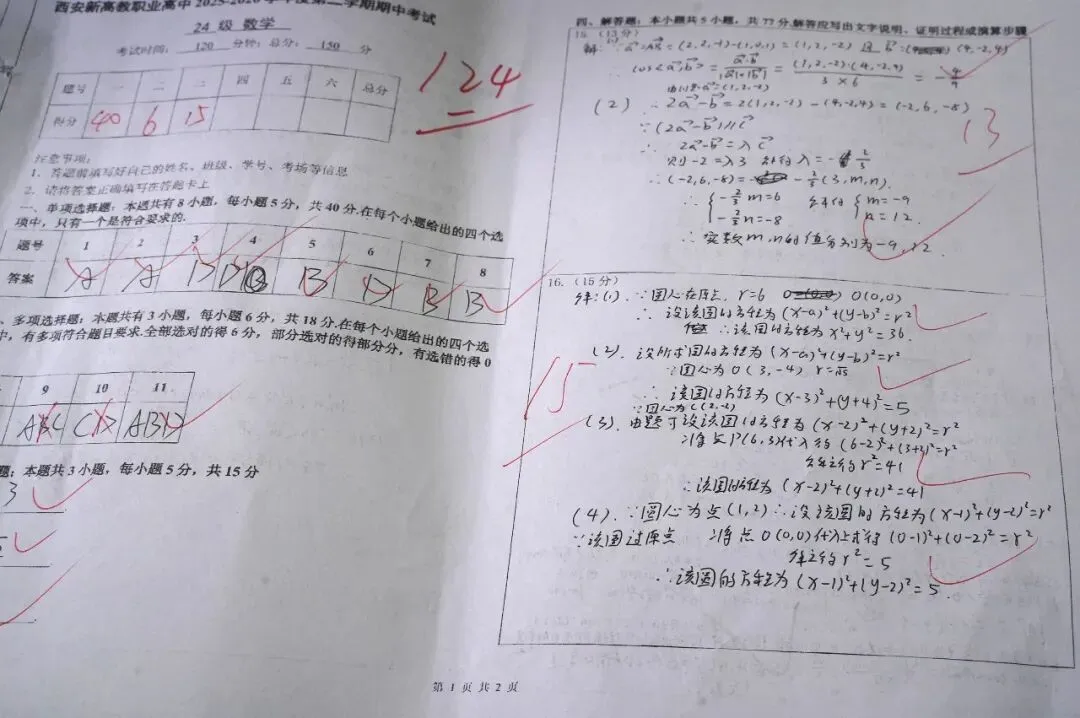 西安新高教职业高中 2025-2026 学年度第二学期期中考试
24 级 数学
考试时间: 120 分钟; 总分: 150 分
题号 一 二 三 四 五 六 总分
得分 40 6 15
124
注意事项:
1、答题前填写好自己的姓名、班级、学号、考场等信息
2、请将答案正确填写在答题卡上
一、单项选择题:本题共有 8 小题,每小题 5 分,共 40 分.在每个小题给出的四个选
项中,只有一个是符合要求的.
题号 1 2 3 4 5 6 7 8
答案 A A D D B D B B
、多项选择题:本题共有 3 小题,每小题 6 分,共 18 分.在每个小题给出的四个选
中,有多项符合题目要求.全部选对的得 6 分,部分选对的得部分分,有选错的得 0
9 10 11
ABC CD ABD
题:本题共 3 小题,每小题 5 分,共 15 分
3
四、解答题:本小题共 5 小题,共 77 分.解答应写出文字说明、证明过程或演算步骤
15.(13分)
解:(1)∵a=AB=(2,2,-1)-(1,0,1)=(1,2,-2) 且 b=(4,-2,4)
∴cos<a,b>=a·b/|a||b|=(1,2,-2)·(4,-2,4)/3×6=-4/9
由(1)得a=(1,2,-2)
(2)∴2a-b=2(1,2,-2)-(4,-2,4)=(-2,6,-8)
∵(2a-b)∥c
∴2a-b=λc
则-2=λ3 解得λ=-2/3
∴(-2,6,-8)=-2/3(3,m,n)
∴{-2/3m=6 解得{m=-9
-2/3n=-8 n=12.
∴实数m,n的值分别为-9,12.
13
16.(15分)
解:(1).∵圆心在原点,r=6 O(0,0)
∴设该圆的方程为(x-a)²+(y-b)²=r²
∴该圆的方程为x²+y²=36.
(2).设所求圆的方程为(x-a)²+(y-b)²=r²
∵圆心为O(3,-4) r=√5
∴该圆的方程为(x-3)²+(y+4)²=5
∵圆心为C(2,-2)
(3).由题可设该圆的方程为(x-2)²+(y+2)²=r²
∴将点P(6,3)代入得(6-2)²+(3+2)²=r²
解之得r²=41
∴该圆的方程为(x-2)²+(y+2)²=41
(4).∵圆心为点(1,2)∴设该圆的方程为(x-1)²+(y-2)²=r²
∵该圆过原点 ∴将点O(0,0)代入上式得(0-1)²+(0-2)²=r²
解之得r²=5
∴该圆的方程为(x-1)²+(y-2)²=5.
15
第 1 页 共 2 页